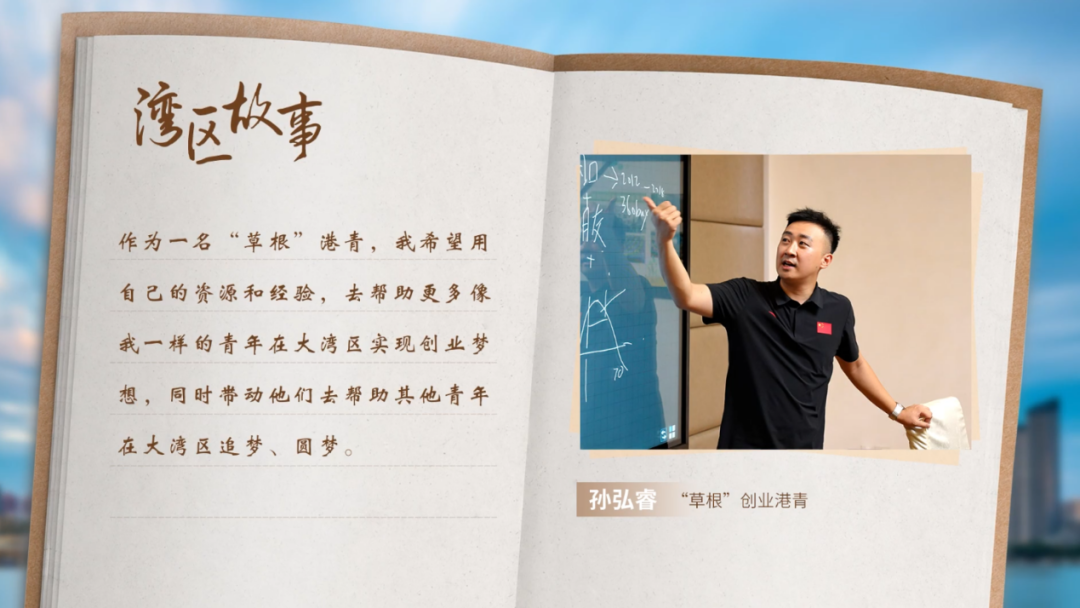 湾区故事
作为一名“草根”港青，我希望用
自己的资源和经验，去帮助更多像
我一样的青年在大湾区实现创业梦
想，同时带动他们去帮助其他青年
在大湾区追梦、圆梦。
→2012
360buy
+
友
+
孙弘睿 “草根”创业港青